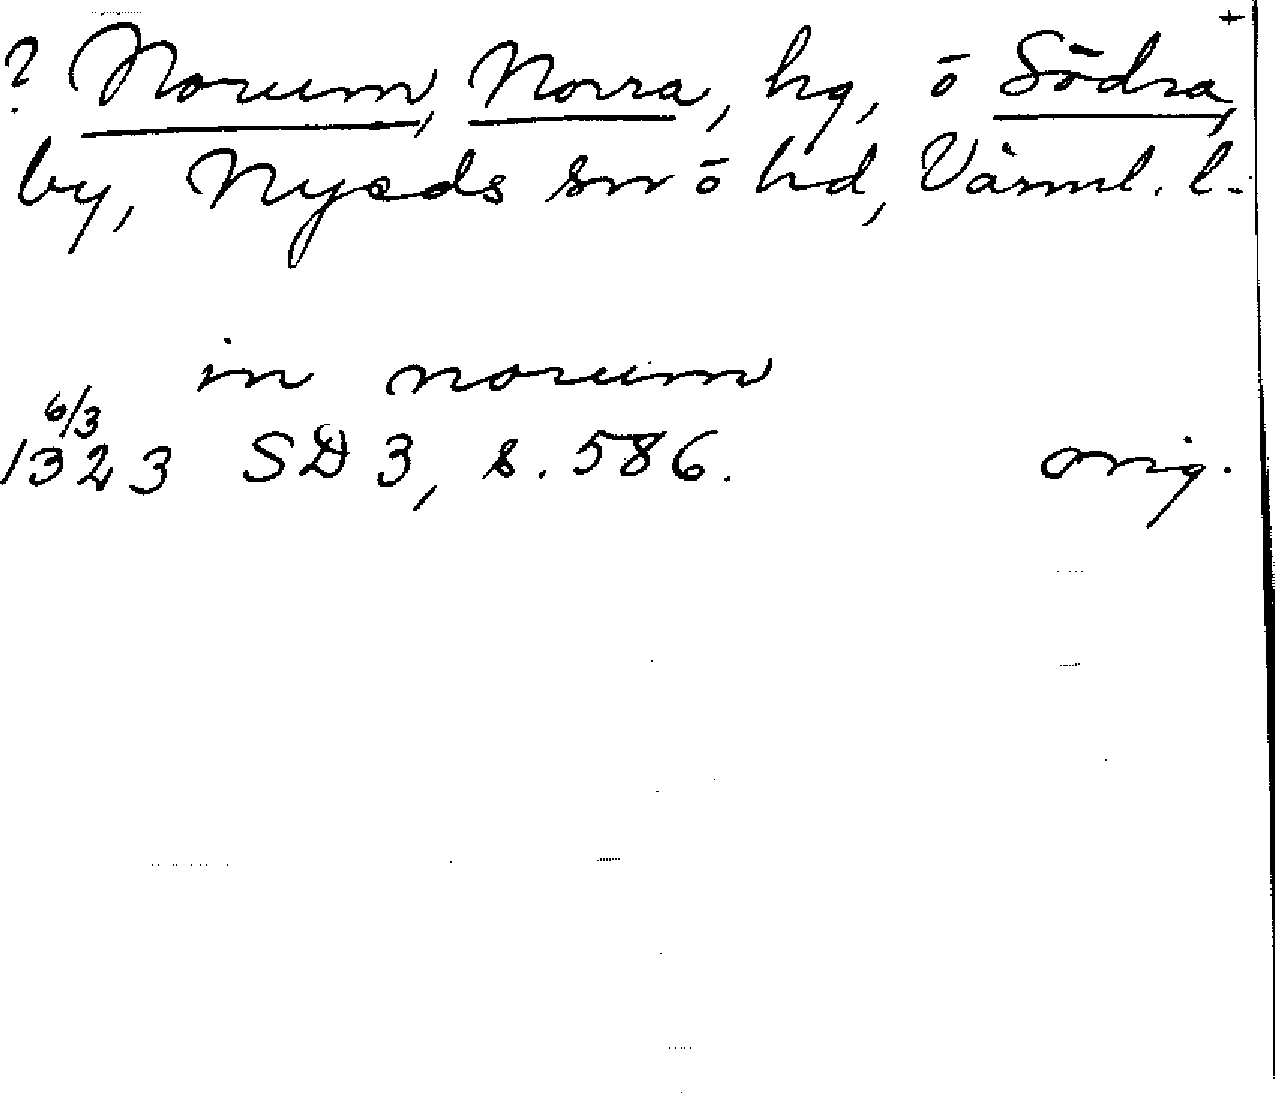 +
? Norum, Norra, hg, ō Södra,
by, Nyeds sn ō hd, Värml. l.
in norum
6/3
1323 SD 3, s. 586. orig.